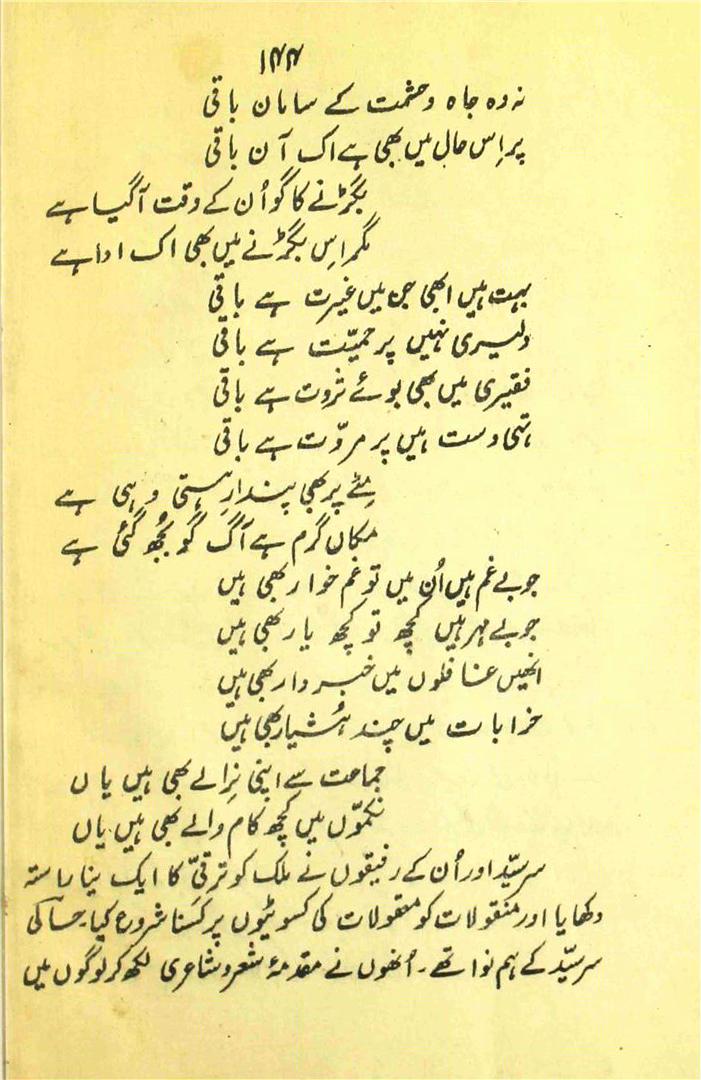 ۱۴۴
نہ وہ جاہ و حشمت کے سامان باقی
پر اِس حال میں بھی ہے اک آن باقی
بگڑنے کا گو اُن کے وقت آگیا ہے
مگر اِس بگڑنے میں بھی اک ادا ہے
بہت ہیں ابھی جن میں غیرت ہے باقی
دلیری نہیں پر حمیّت ہے باقی
فقیری میں بھی بوئے ثروت ہے باقی
تہی دست ہیں پر مروّت ہے باقی
مِٹے پر بھی پندارِ ہستی وہی ہے
مکاں گرم ہے آگ گو بُجھ گئی ہے
جو بے غم ہیں اُن میں تو غم خوار بھی ہیں
جو بے مہر ہیں کچھ تو کچھ یار بھی ہیں
انھیں غافلوں میں خبردار بھی ہیں
خرابات میں چند ہُشیار بھی ہیں
جماعت سے اپنی نِرالے بھی ہیں یاں
نکمّوں میں کچھ کام والے بھی ہیں یاں
سرسیّد اور اُن کے رفیقوں نے ملک کو ترقیّ کا ایک نیا راستہ
دکھایا اور منقولات کو معقولات کی کسوٹیوں پر کَسنا شروع کیا۔ حالی
سرسیّد کے ہم نوا تھے۔ اُنھوں نے مقدمۂ شعر و شاعری لکھ کر لوگوں میں